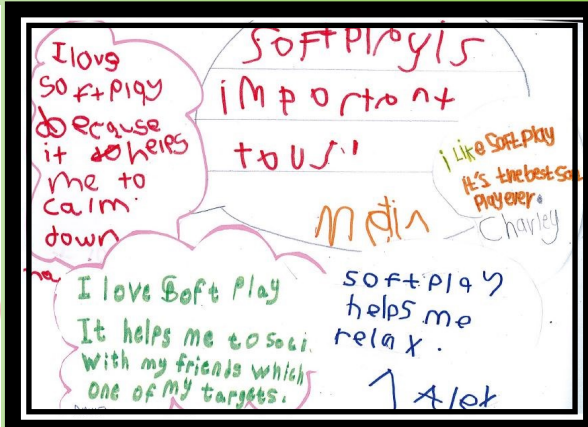 I love
soft play
because
it helps
me to
calm
down
Soft play is
important
to us!!
i Like Soft play
It's the best Soft
Play ever.
Charley
I love Soft Play
It helps me to Soci.
With my friends which
one of my targets.
soft play
helps me
relax.
Alex